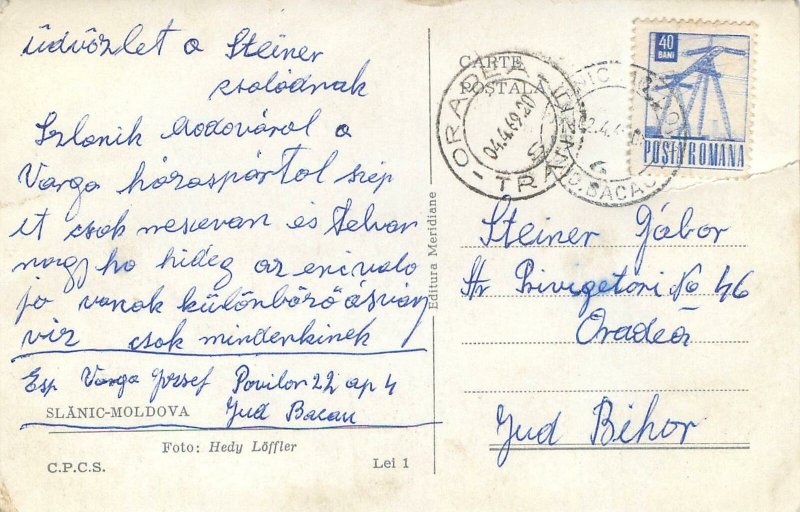 üdvözlet a Steiner
csalódnak
Szlanik Modovárol a
Varga házaspártol szép
it csak mesevan és Telvan
nagy ho hideg az enivalo
jo vanak különböző ásván
viz csak mindenkinek
Esp Varga Jozsef Povilon 22 ap 4
Jud Bacau
SLĂNIC-MOLDOVA
Foto: Hedy Löffler
C.P.C.S.
Lei 1
Editura Meridiane
CARTE
POȘTALĂ
ORADEA
TRANZIT
04.4.69.20
JUD. BACAU
40
BANI
POSTA ROMANA
Steiner Gábor
Str Privigetori No 46
Oradea
Jud Bihor